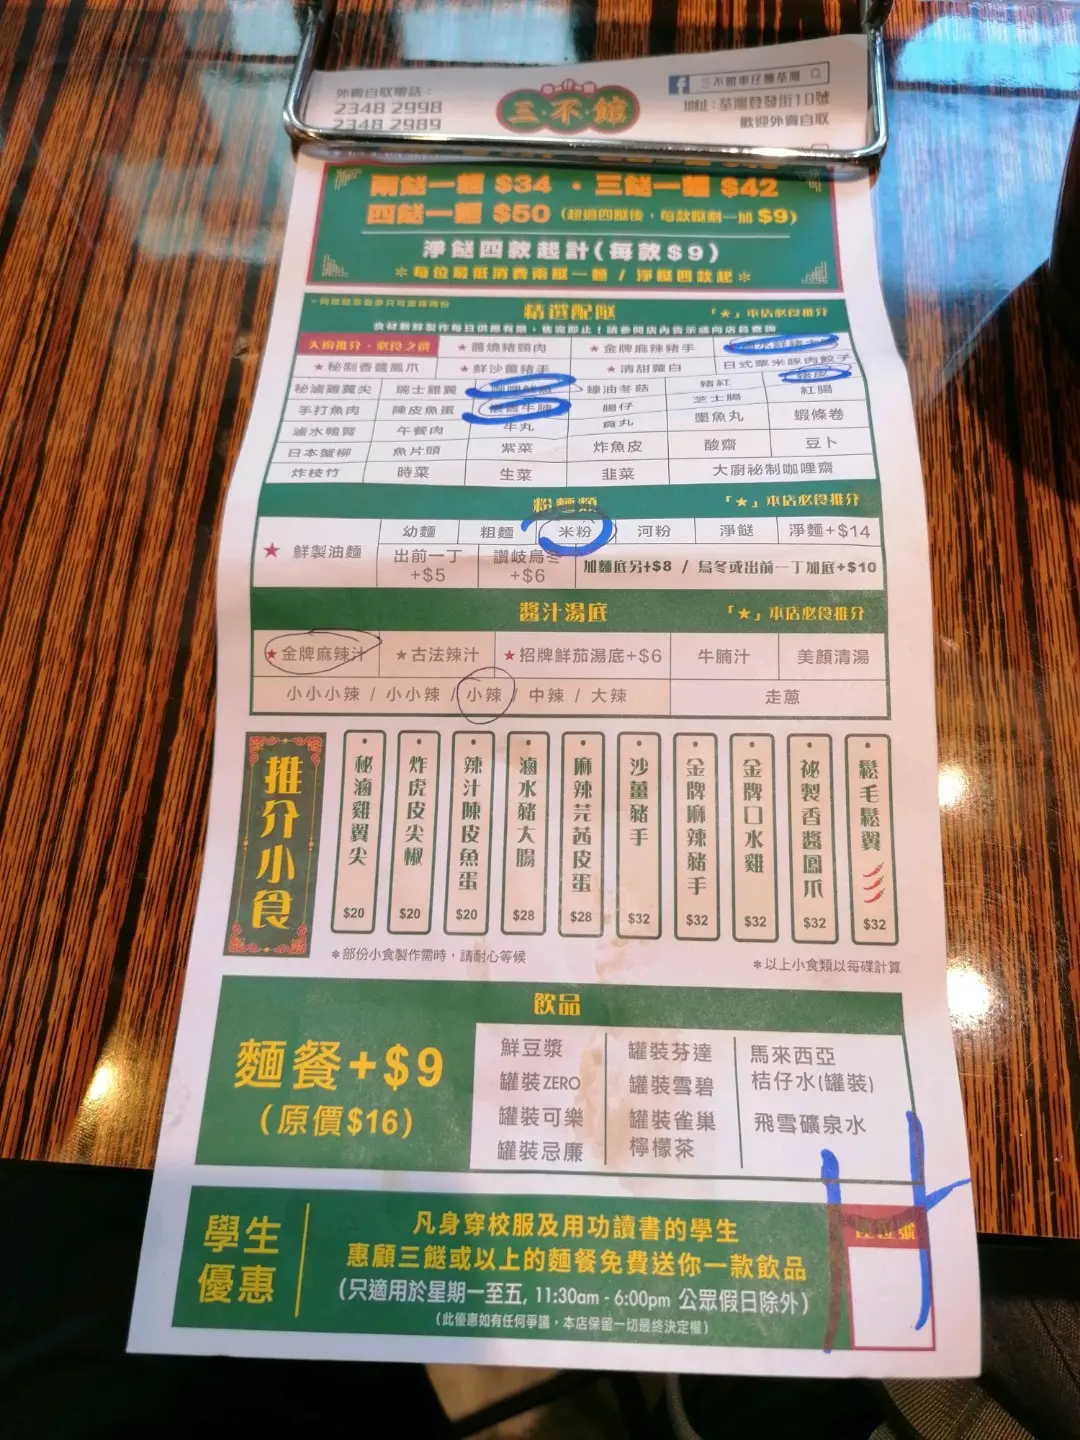 外賣自取電話：
2348 2998
2348 2989
車仔麵
三不館
三不館車仔麵荃灣
地址：荃灣登發街10號
歡迎外賣自取
兩餸一麵 $34 · 三餸一麵 $42
四餸一麵 $50 (超過四餸後，每款餸劃一加 $9)
淨餸四款起計(每款$9)
＊每位最低消費兩餸一麵 / 淨餸四款起＊
精選配餸 「★」本店必食推介
食材新鮮製作每日供應有限，售完即止！請參閱店內告示或向店員查詢
大廚推介·必食之選 ★醬燒豬頸肉 ★金牌麻辣豬手
★秘制香醬鳳爪 ★鮮沙薑豬手 ★清甜蘿白 日式粟米豚肉餃子
秘滷雞翼尖 瑞士雞翼 蠔油冬菇 豬紅
手打魚肉 陳皮魚蛋 腸仔 芝士腸 紅腸
滷水鴨腎 午餐肉 牛丸 貢丸 墨魚丸 蝦條卷
日本蟹柳 魚片頭 紫菜 炸魚皮 酸齋 豆卜
炸枝竹 時菜 生菜 韭菜 大廚祕制咖哩齋
粉麵類 「★」本店必食推介
★ 鮮製油麵 幼麵 粗麵 米粉 河粉 淨餸 淨麵+$14
出前一丁+$5 讚岐烏冬+$6 加麵底另+$8 / 烏冬或出前一丁加底+$10
醬汁湯底 「★」本店必食推介
★金牌麻辣汁 ★古法辣汁 ★招牌鮮茄湯底+$6 牛腩汁 美顏清湯
小小小辣 / 小小辣 / 小辣 / 中辣 / 大辣 走蔥
推介小食
秘滷雞翼尖 $20
炸虎皮尖椒 $20
辣汁陳皮魚蛋 $20
滷水豬大腸 $28
麻辣芫茜皮蛋 $28
沙薑豬手 $32
金牌麻辣豬手 $32
金牌口水雞 $32
祕製香醬鳳爪 $32
鬆毛鬆翼 $32
＊部份小食製作需時，請耐心等候
＊以上小食類以每碟計算
飲品
麵餐+$9
(原價$16)
鮮豆漿 罐裝芬達 馬來西亞
罐裝ZERO 罐裝雪碧 桔仔水(罐裝)
罐裝可樂 罐裝雀巢 飛雪礦泉水
罐裝忌廉 檸檬茶
學生
優惠
凡身穿校服及用功讀書的學生
惠顧三餸或以上的麵餐免費送你一款飲品
(只適用於星期一至五, 11:30am - 6:00pm 公眾假日除外)
(此優惠如有任何爭議，本店保留一切最終決定權)